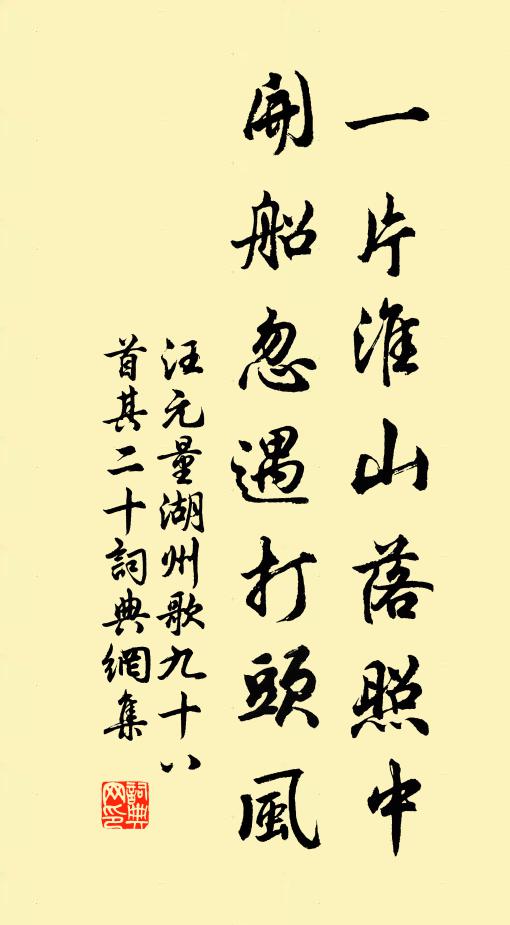 一片淮山落照中
開船忽遇打頭風
汪元量湖州歌九十八
首其二十詞典網集
詞典
网印